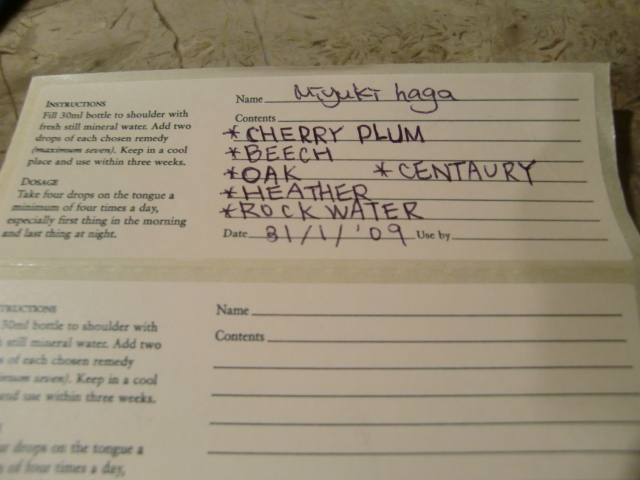 INSTRUCTIONS
Fill 30ml bottle to shoulder with
fresh still mineral water. Add two
drops of each chosen remedy
(maximum seven). Keep in a cool
place and use within three weeks.
DOSAGE
Take four drops on the tongue a
minimum of four times a day,
especially first thing in the morning
and last thing at night.
Name Miyuki haga
Contents
*CHERRY PLUM
*BEECH
*OAK *CENTAURY
*HEATHER
*ROCK WATER
Date 31/1/'09 Use by
TRUCTIONS
30ml bottle to shoulder with
still mineral water. Add two
of each chosen remedy
imum seven). Keep in a cool
and use within three weeks.
ur drops on the tongue a
of four times a day,
Name
Contents